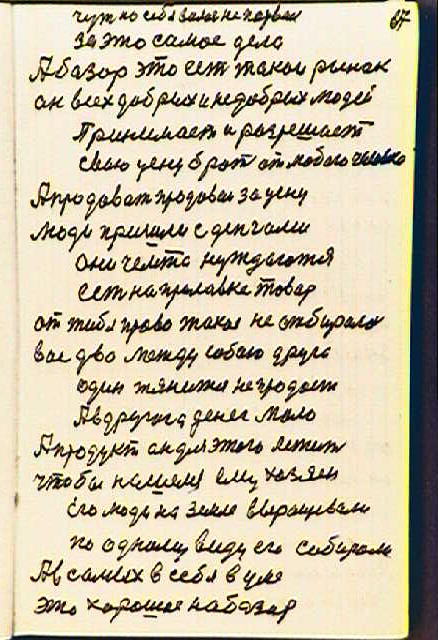 67
чуть но себя занял не порван
За это самое дело
А базар это ест такой рынак
он всех добрых и недобрых людей
Принимает и разрешает
Свою цену брат от любого человека
А продават продавай за цену
Люди пришли с денгами
Они чемта нуждаются
Сест на прилавке товар
от тибя право такое не отбирало
вас дво между собою друга
один тянится не продаст
А в другога денег мало
А продукт он для этого лежит
чтобы нашелся ему хозяен
Его люди на земле выращивали
по одному виду его собирали
А в самых в себя в уме
это хорошое на базар